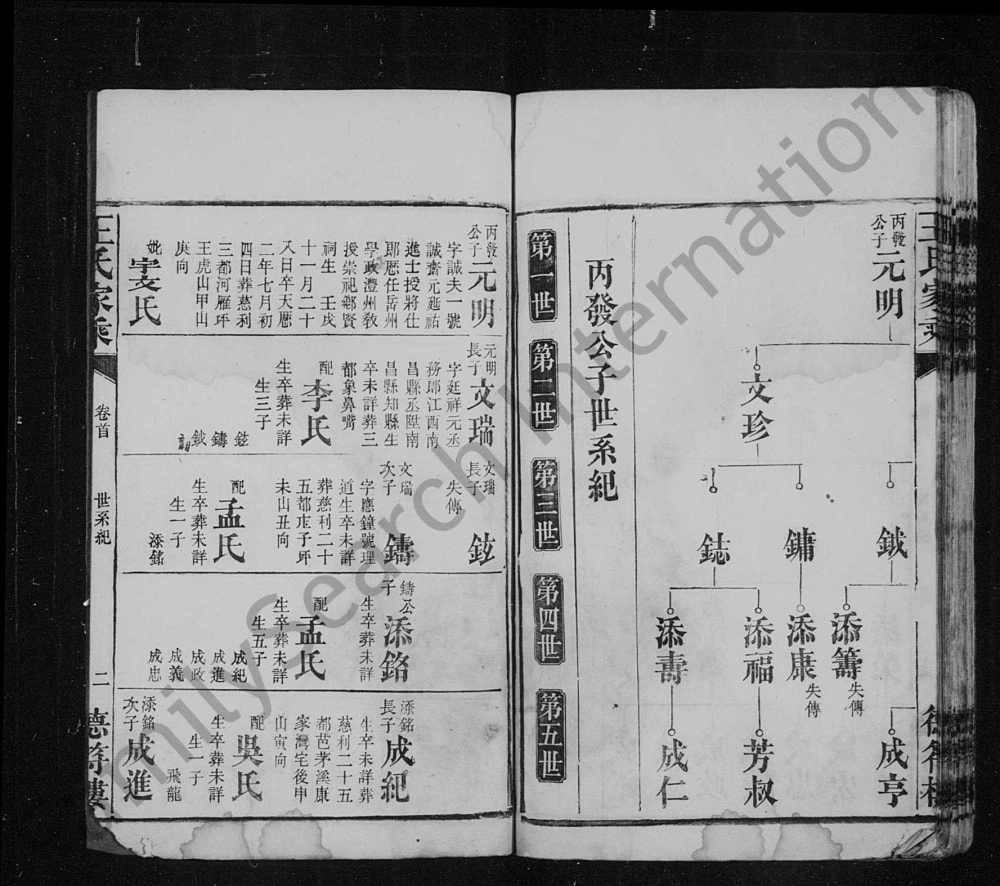 王氏家乘
丙發公子
元明
文珍
鉞
鏞
鋕
添籌
失傳
添康
失傳
添福
添壽
成亨
芳叔
成仁
丙發公子世系紀
第一世
第二世
第三世
第四世
第五世
丙發公子
元明
字誠夫一號
誠齋元延祐
進士授將仕
郎歷任岳州
學政澧州教
授崇祀鄉賢
祠生 壬戌
十一月二十
八日卒天曆
二年七月初
四日葬慈利
三都河雁坪
王虎山甲山
庚向
妣
氏
元明長子
文瑞
字廷祥元丞
務郎江西南
昌縣丞陞南
昌縣知縣生
卒未詳葬三
都象鼻嘴
配
李氏
生卒葬未詳
生三子
鉉
鑄
鉞
文瑞長子
鉉
失傳
文瑞次子
鑄
字應鐘號理
道生卒未詳
葬慈利二十
五都庄子坪
未山丑向
配
孟氏
生卒葬未詳
生一子
添銘
鑄公子
添銘
生卒葬未詳
配
孟氏
生卒葬未詳
生五子
成紀
成進
成政
成義
成忠
添銘長子
成紀
生卒未詳葬
慈利二十五
都芭茅溪康
家灣宅後申
山寅向
配
吳氏
生卒葬未詳
生一子
飛龍
添銘次子
成進
王氏家乘
卷首
世系紀
二
德符樓
FamilySearch International